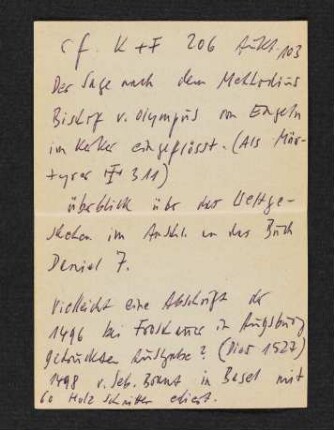 cf. K + F 206 Aukt. 103
Der Sage nach dem Methodius
Bischof v. Olympus von Engeln
im Kerker eingeflösst. (Als Mär-
tyrer 311)
überblick über das Weltge-
schehen im Anschl. an das Buch
Daniel 7.
Vielleicht eine Abschrift der
1496 bei Froschauer in Augsburg
gedruckten Ausgabe? (Dior 1527)
1498 v. Seb. Brant in Basel mit
60 Holzschnitten ediert.